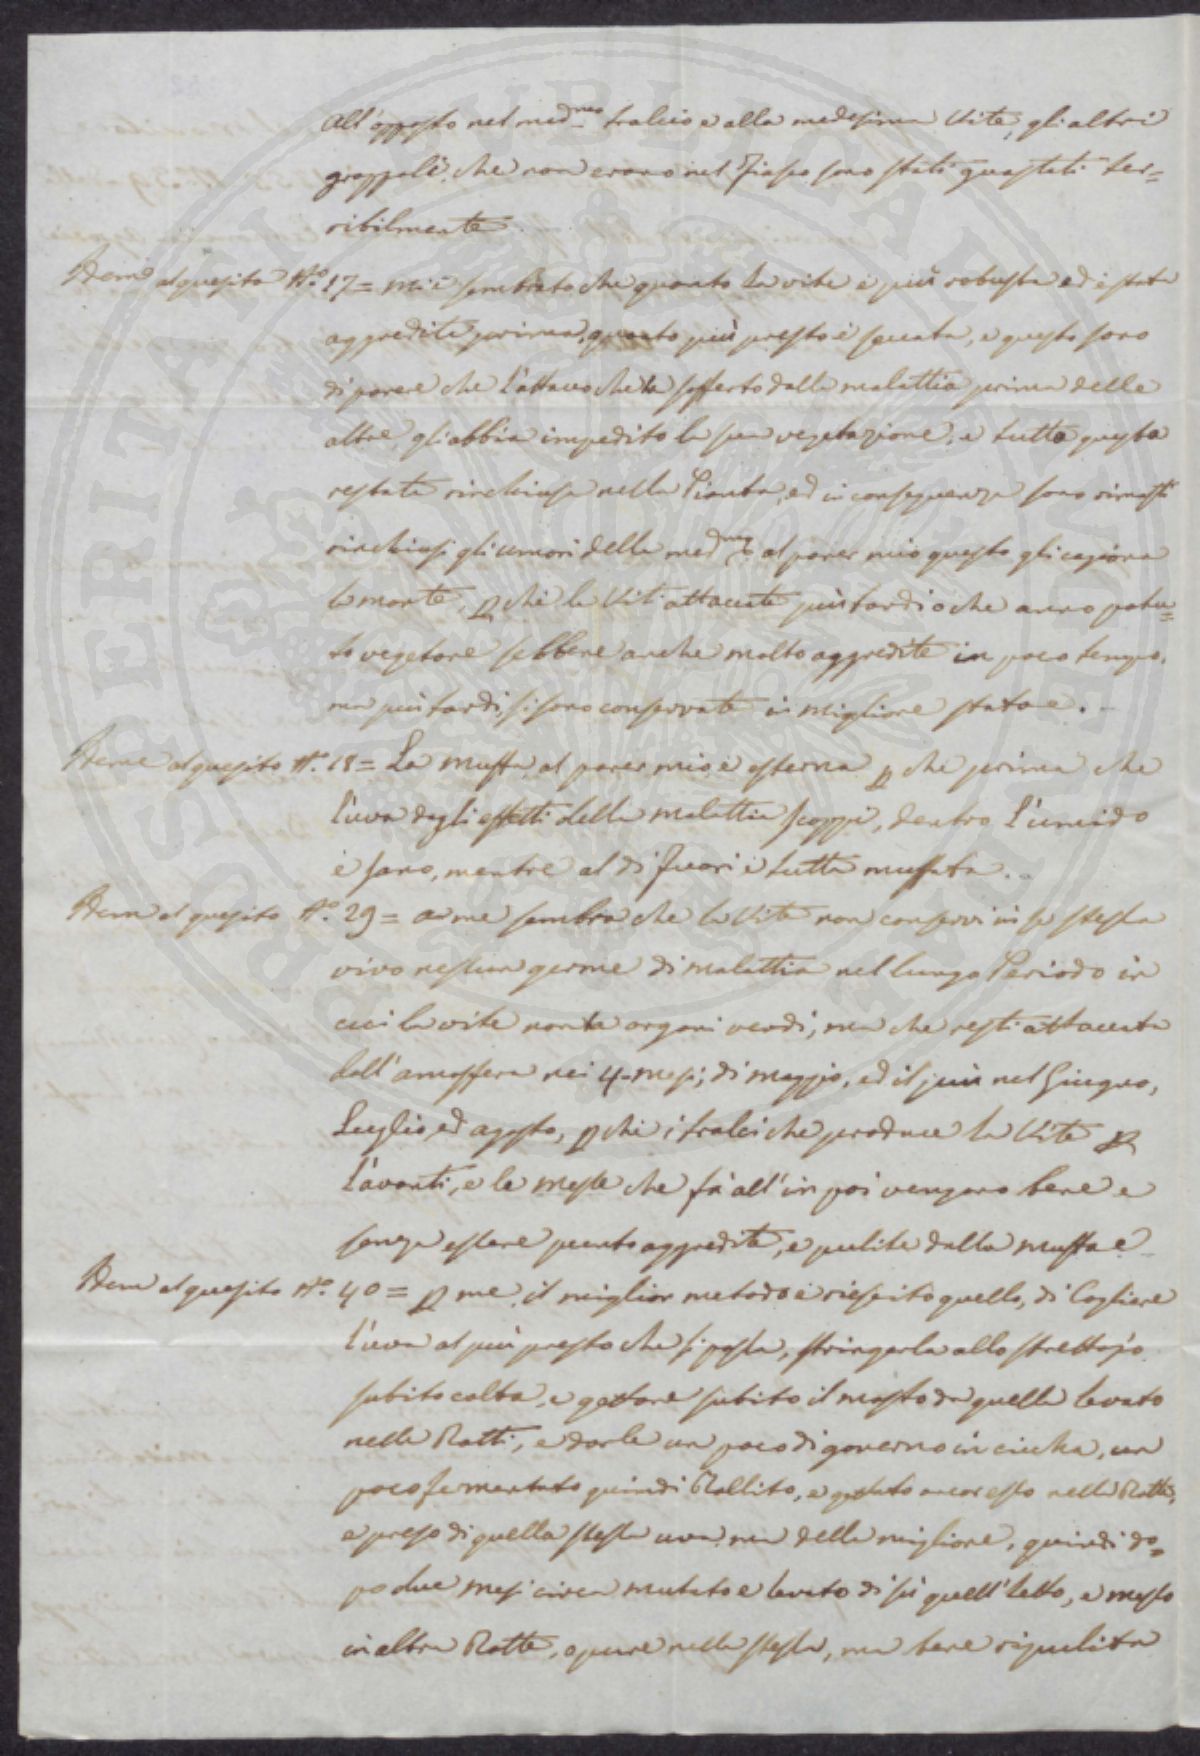 all'opposto nel med.mo tralcio e alla medesima Vite, gli altri
grappoli che non erano nel Fiasco sono stati guastati ter=
ribilmente.
Idem al quesito N.o 17 = mi è sembrato che quanto la vite è più robusta ed è stata
aggredita prima, quanto più presto è seccata, e questo sono
di parere che l'attacco che ha sofferto dalla malattia prima delle
altre, gli abbia impedito la sua vegetazione, e tutta questa
restata rinchiusa nella Pianta, ed in conseguenza sono rimasti
rinchiusi gli umori della med.ma e al parer mio questo gli cagiona
la morte, p chè le Viti attaccate più tardi o che anno potu=
to vegetare sebbene anche molto aggredite in poco tempo,
ma più tardi, si sono conservate in migliore stato.
Idem al quesito N. 18 = La muffa al parer mio è esterna p chè prima che
l'uva dagli effetti della malattia scoppi, dentro l'umido
è sano, mentre al di fuori è tutta muffata.
Idem al quesito N.o 29 = a me sembra che la Vite non conservi in se stessa
vivo nessun germe di malattia nel lungo Periodo in
cui la vite non ha organi verdi, ma che resti attaccata
dall'amosfera nei 4 mesi, di maggio, ed il più nel Giugno,
Luglio ed agosto, p chè i tralci che produce la Vite p
l'avanti, e le messe che fà all'in poi vengano bene e
senza essere punto aggredite, e pulite dalla muffa
Idem al quesito N.o 40 = p me il miglior metodo è riescito quello, di Cogliere
l'uva al più presto che si possa, stringerla allo strettojo
subito colta, e gettare subito il mosto da quella levato
nelle Botti, e darle un poco di governo in ciucha, un
poco fermentato quindi Bollito, e gettato ancor esso nelle Botti,
e preso di quella stessa uva ma della migliore, quindi do=
po due mesi circa mutato e levato di su quell'letto, e messo
in altra Botte, opure nella stessa, ma bene ripulita